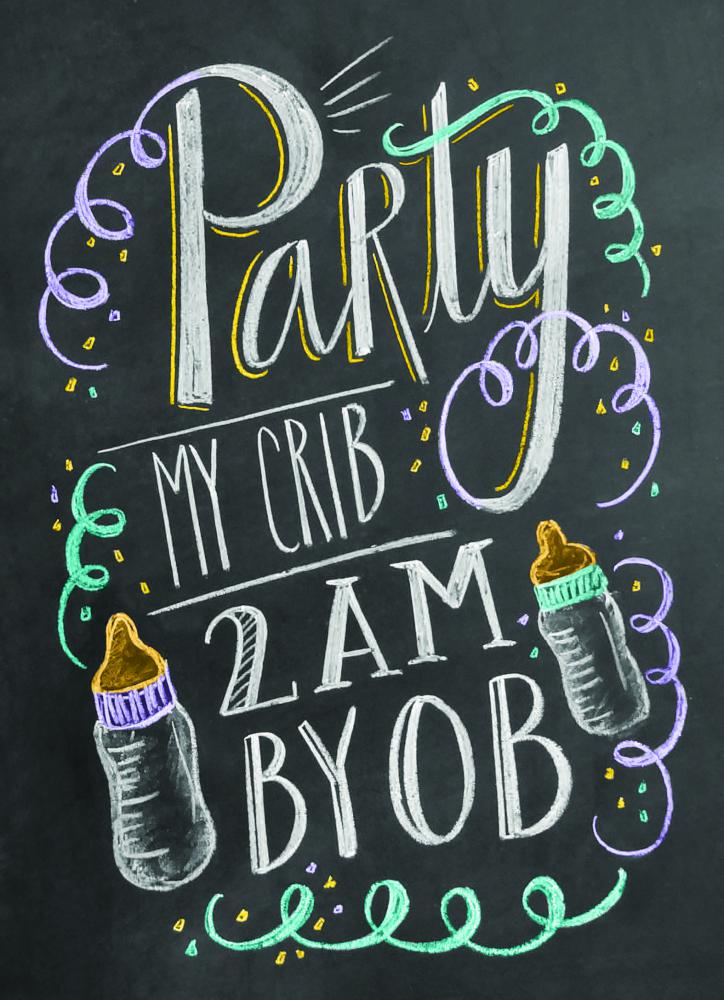 Party
MY CRIB
2AM
BYOB